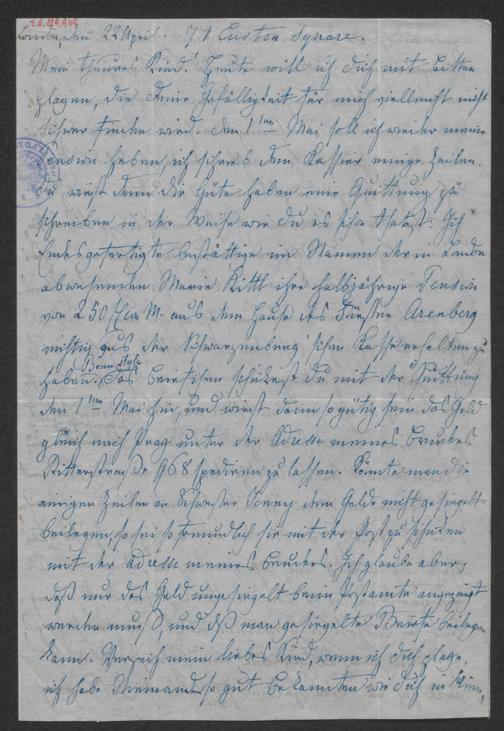 London, den 22 April. 71 Euston Square.
Mein theures Kind! Heute will ich dich mit Bitten
plagen, die deine Gefälligkeit für mich vielleicht nicht
schwer finden wird. Den 1ten Mai soll ich wieder meine
Pension haben, ich schrieb dem Kassier einige Zeilen.
Du wirst dann die Güte haben eine Quittung zu
schreiben in der Weise wie du es schon thatest: Ich
Endesgefertigte bestättige im Namen der in London
abwesenden Marie Kittl ihre halbjährige Pension
von 250 f C. M. aus dem Hause des Fürsten Arenberg
richtig aus der Schwarzenberg'schen Kasse erhalten zu
haben. Das Briefchen schickest du mit der Quittung
den 1ten Mai hin, und wirst dann so gütig sein das Geld
gleich nach Prag unter der Adresse meines Bruders
Ritterstraße 968 spediren zu lassen. Könnte man die
einigen Zeilen an Schwester Jenny dem Gelde nicht gesiegelt
beilegen, so sei so freundlich sie mit der Post zu schicken
mit der Adresse meines Bruders. Ich glaube aber,
daß nur das Geld ungesiegelt beim Postamte angezeigt
werden muß, und daß man gesiegelte Briefe beilegen
kann. Verzeih mein liebes Kind, wenn ich dich plage,
ich habe Niemanden so gut bekannten wie dich in Wien,